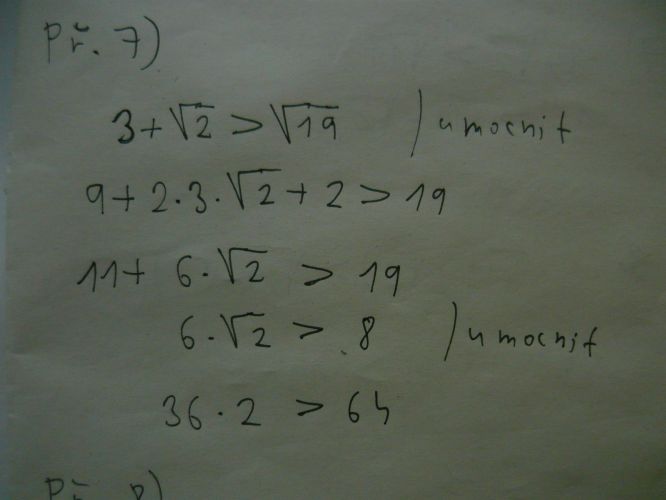 Př. 7)
3+√2 > √19 /umocnit
9+2·3·√2+2 > 19
11+ 6·√2 > 19
6·√2 > 8 /umocnit
36·2 > 64
Př. 8)